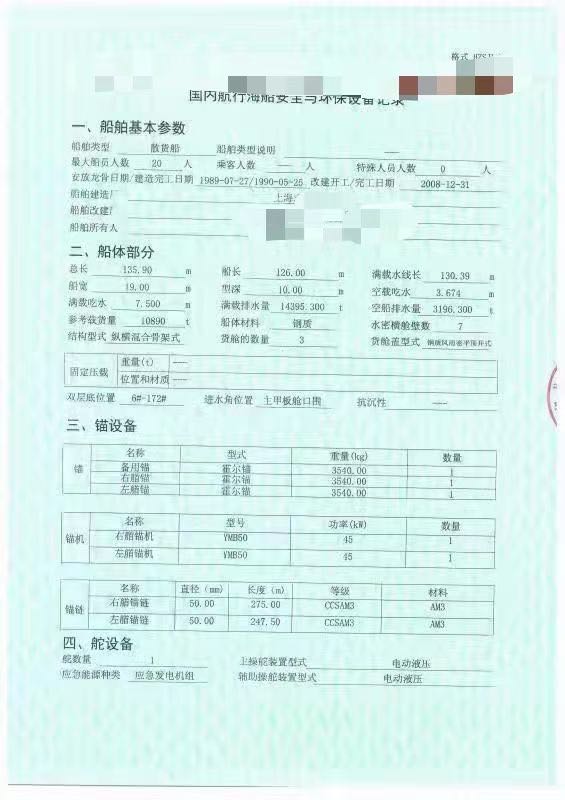 格式
国内航行海船安全与环保设备记录
一、船舶基本参数
船舶类型 散货船 船舶类型说明 ——
最大船员人数 20 人 乘客人数 —— 人 特殊人员人数 0 人
安放龙骨日期/建造完工日期 1989-07-27/1990-05-25 改建开工/完工日期 2008-12-31
船舶建造厂 上海
船舶改建厂
船舶所有人
二、船体部分
总长 135.90 m 船长 126.00 m 满载水线长 130.39 m
船宽 19.00 m 型深 10.00 m 空载吃水 3.674 m
满载吃水 7.500 m 满载排水量 14395.300 t 空船排水量 3196.300 t
参考载货量 10890 t 船体材料 钢质 水密横舱壁数 7
结构型式 纵横混合骨架式 货舱的数量 3 货舱盖型式 钢质风雨密平顶开式
固定压载 重量(t) ——
位置和材质 ——
双层底位置 6#-172# 进水角位置 主甲板舱口围 抗沉性 ——
三、锚设备
锚 名称 型式 重量(kg) 数量
备用锚 霍尔锚 3540.00 1
右艏锚 霍尔锚 3540.00 1
左艏锚 霍尔锚 3540.00 1
锚机 名称 型号 功率(kW) 数量
右艏锚机 YMB50 45 1
左艏锚机 YMB50 45 1
锚链 名称 直径(mm) 长度(m) 等级 材料
右艏锚链 50.00 275.00 CCSAM3 AM3
左艏锚链 50.00 247.50 CCSAM3 AM3
四、舵设备
舵数量 1 主操舵装置型式 电动液压
应急能源种类 应急发电机组 辅助操舵装置型式 电动液压